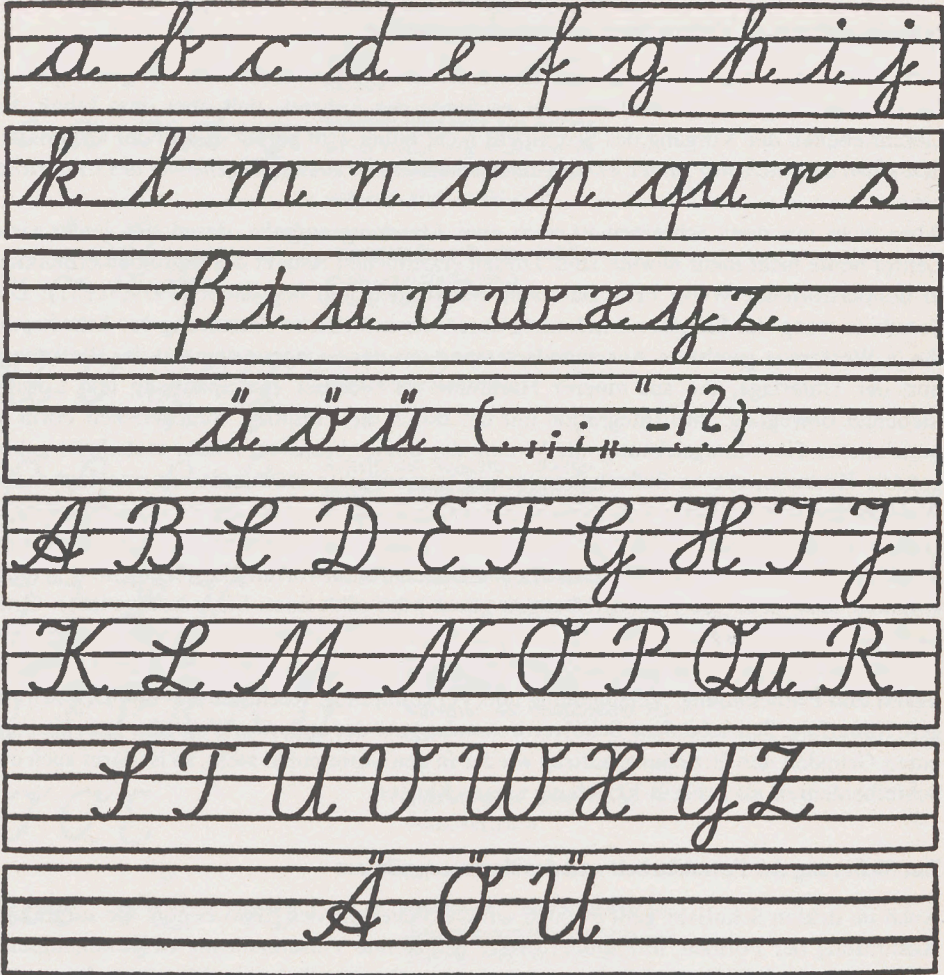 a b c d e f g h i j
k l m n o p qu r s
ß t u v w x y z
ä ö ü ( . , ; : ! „ " - 1 2 )
A B C D E F G H I J
K L M N O P Qu R
S T U V W X Y Z
Ä Ö Ü